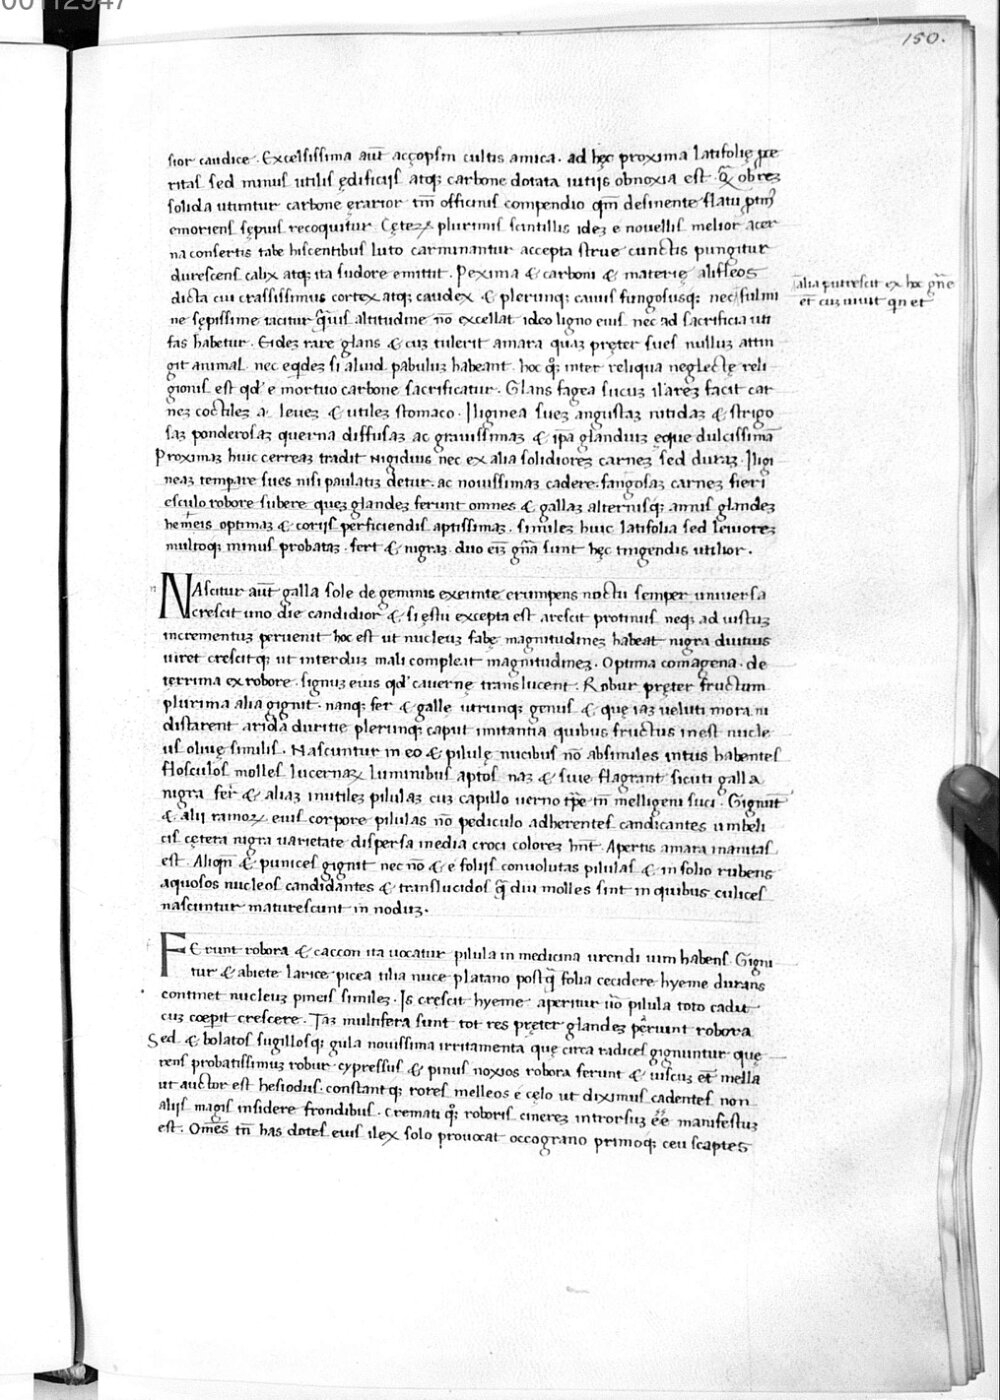 00112947
150.
sior caudice. Excelsissima aut̄ acçopsm cultis amica. ad hęc proxima latifolię pce
ritas sed minus utilis ędificijs atq; carbone dotata uitijs obnoxia est. Q̄ obrez
solida utuntur carbone ęrarior tm̄ officinis compendio qm̄ desinente flatu ptin⁹
emoriens sępius recoquitur. Cęteꝝ plurimis scintillis idez e nouellis melior acer
na confertis tabe hiscentibus luto carminantur accepta strue cunctis pungitur
durescens calix atq; ita sudore emittit. Pexima & carboni & materię alisleos
dicta cui crassissimus cortex atq; caudex & plerunq; cauus fungosusq; nec fulmi
alia putrescit ex hoc gn̄e
et cuz uiuit qn et
ne sępissime tacitur q̄uis altitudine nō excellat ideo ligno eius nec ad sacrificia uti
fas habetur. Eidez rare glans & cuz tulerit amara quaz pręter sues nulluz attin
git animal nec eqdez si aliud pabuluz habeant. hoc q̄; inter reliqua neglectę reli
gionis est qd' e mortuo carbone sacrificatur. Glans fagea sucuz ilarez facit car
nez coctilez a leuez & utilez stomaco. Iliginea suez angustaz nitidaz & strigo
saz ponderosaz querna diffusaz ac grauissimaz & ip̄a glanduiz ęque dulcissimā
Proximaz huic cerreaz tradit nigidius nec ex alia solidiorez carnez sed duraz. Iligi
neaz temp̄are sues nisi paulatiz detur. ac nouissimaz cadere. fangosaz carnez fieri
esculo robore subere quez glandez ferunt omnes & gallaz alternisq; annis glandez
hemeis optimaz & corijs perficiendis aptissimaz. similez huic latifolia sed leuiorez
multoq; minus probataz. fert & nigraz. duo eiz gn̄a sunt hęc tingendis utilior.
NAscitur aut̄ galla sole de geminis exeunte erumpens noctu semper uniuersa
crescit uno die candidior & si ęstu excepta est arescit protinus neq; ad iustuz
incrementuz peruenit hoc est ut nucleuz fabę magnitudinez habeat nigra diutius
uiret crescitq; ut interduz mali compleat magnitudinez. Optima comagena. de
terrima ex robore. signuz eius qd' cauernę translucent. Robur pręter fructum
plurima alia gignit. nanq; fer & gallę utrunq; genus & quę iaz ueluti mora ni
distarent arida duritie plerunq; caput imitantia quibus fructus inest nucle
us oliuę similis. Nascuntur in eo & pilulę nucibus nō absimiles intus habentes
flosculos molles lucernaꝝ luminibus aptos naz & siue flagrant sicuti galla
nigra fer̄ & aliaz inutilez pilulaz cuz capillo uerno tp̄e tn̄ melligeni suci. Gignūt
& alij ramoꝝ eius corpore pilulas nō pediculo adherentes candicantes umbeli
cis cętera nigra uarietate dispersa media croci colorez hn̄t. Apertis amara inanitas
est. Aliqn̄ & punices gignit nec nō & e folijs conuolutas pilulas & in folio rubens
aquosos nucleos candidantes & translucidos q̄ diu molles sint in quibus culices
nascuntur maturescunt in noduz.
FErunt robora & caccon ita uocatur pilula in medicina urendi uim habens. Gigni
tur & abiete larice picea tilia nuce platano postq̄ folia cecidere hyeme durans
continet nucleuz pineis similez. Is crescit hyeme aperitur uō pilula toto cadit
cuz cœpit crescere. Taz multifera sunt tot res pręter glandez peruunt robora
Sed & bolatos sugillosq; gula nouissima irritamenta quę circa radices gignuntur quę
rens probatissimuz robur cypressus & pinus noxios robora ferunt & uiscuz et̄ mella
ut auctor est hesiodus. constantq; rores melleos e cęlo ut diximus cadentes non
alijs magis insidere frondibus. cremati q̄; roboris cinerez introrsuz ēē manifestuz
est. Om̄es tn̄ has dotes eius ilex solo prouocat occograno primoq; ceu scaptes